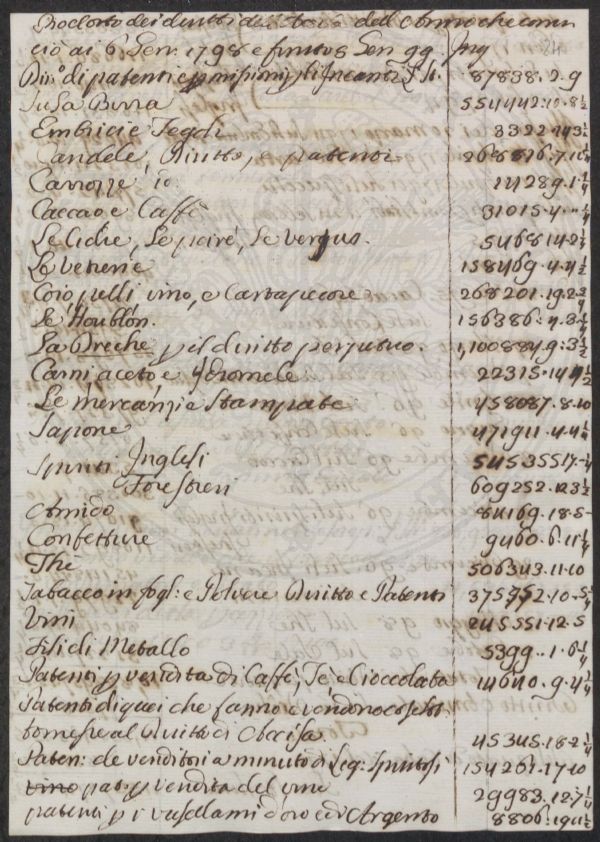 Prodotto dei diritti dell' del che comin
ciò ai 6 Gen. 1798 e finito 5 Gen 99.
Dir.o di patenti e pmissioni p gli Incanti L. St. 87838.2.9
Sulla Birra 554442.10.8½
Embrici e Tegoli 3322.14.3½
Candele, Diritto, e patenti 268876.7.10¼
Carrozze, id. 11289.1.¼
Caccao e Caffè 31015.4.
Le Cidre, Le poiré, Le verjus. 5468.14.2½
Le vetrerie 158469.4.4½
Coio pelli vino, e Cartapecore 268201.19.2¾
Le Houblon. 156386.4.3¼
La Dreche p il diritto perpetuo. 1,100884.9.3½
Carni aceto, e Ydromele 22315.14.4½
Le mercanzie Stampate 458087.8.10
Sapone 471911.4.4¼
Spiriti Inglesi 545355.17.-¼
Forestieri 609252.12.3½
Amido 84169.18.5-
Confetture 9460.6.11¼
The 506343.11.10
Tabacco in fogl: e Polvere Diritto e Patenti 375752.10.5¼
Vini 245551.12.5
Fili di Metallo 5399..1.6¼
Patenti p vendita di Caffè, Tè e Cioccolato 14640.9.4¼
Patenti di quei che fanno e vendono
al Diritto di 45345.18.2¼
Paten: de venditori a minuto di Liq: Spiritosi 154261.17.10
pat. p vendita del vino 29983.12.7¼
patenti p i vasellami d'oro ed Argento 8806.19.1½